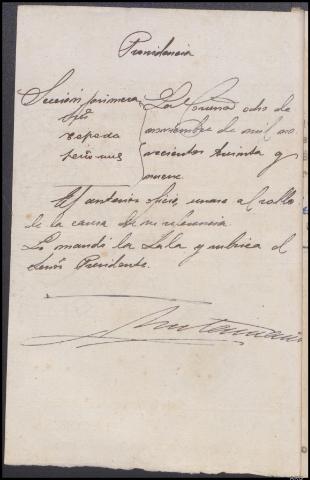 Providencia
Sección primera
Sres
Cepeda
La Coruña ocho de
noviembre de mil no
vecientos treinta y
nueve.
El anterior oficio, unase al rollo
de la causa de su referencia.
Lo mandó la Sala y rubrica el
Señor Presidente.